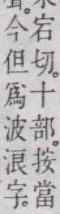 來宕切。十部。按當
聲。今但爲波浪字。